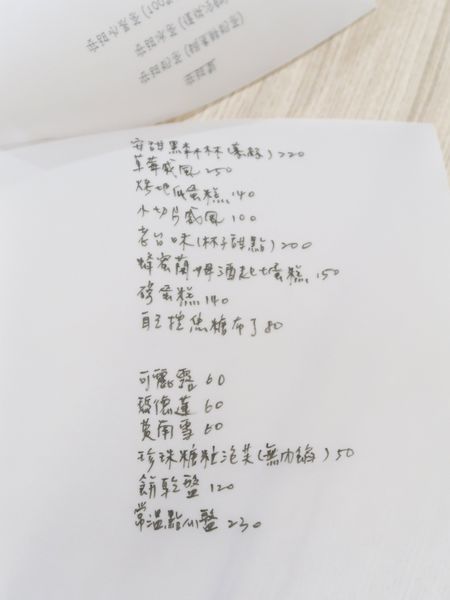 安甜黑森林杯(慕絲) 220
草莓戚風 250
烤地瓜蛋糕 140
小切片戚風 100
老台味(杯子甜點) 200
蜂蜜蘭姆酒起士蛋糕 150
磅蛋糕 140
自主控焦糖布丁 80
可麗露 60
瑪德蓮 60
費南雪 60
珍珠糖粒泡芙(無內餡) 50
餅乾盤 120
常溫點心盤 230